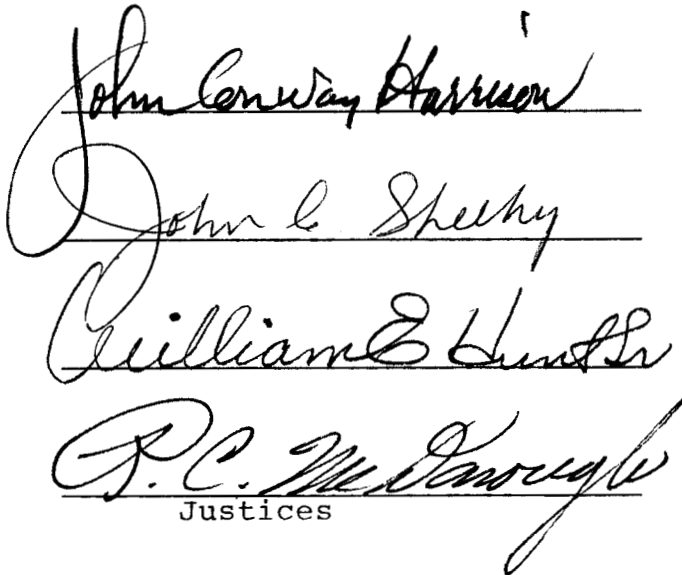 John Conway Harrison
John C Sheehy
William E Hunt Sr
R. C. McDonough
Justices